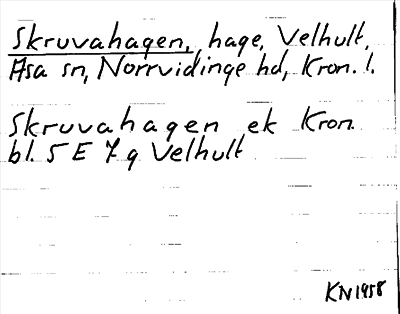 Skruvahagen, hage, Velhult,
Asa sn, Norrvidinge hd, Kron. l.
Skruvahagen ek Kron.
bl. 5 E 7 g Velhult
KN 1958